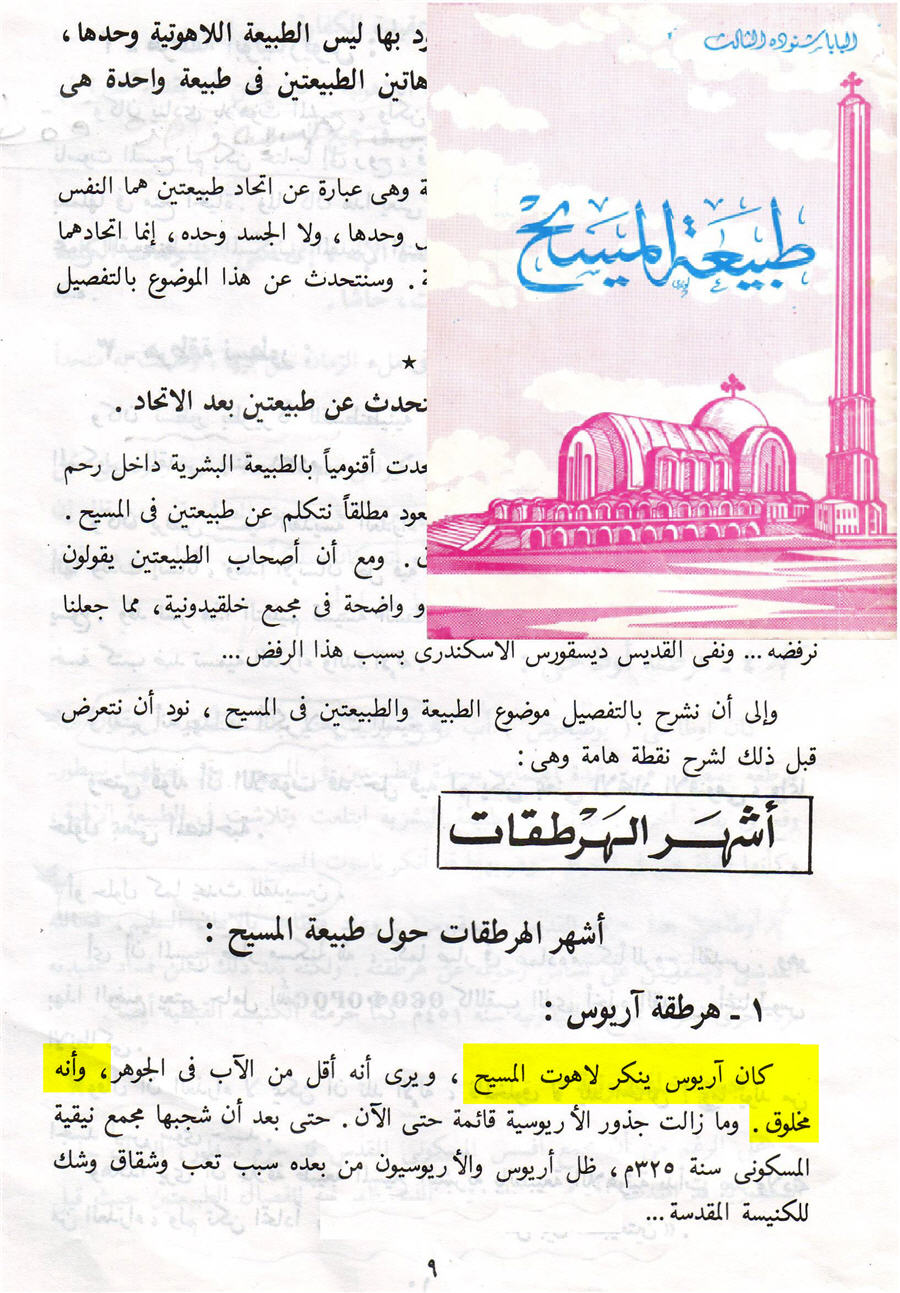 البابا شنوده الثالث
طبيعة المسيح
بها ليس الطبيعة اللاهوتية وحدها ،
هاتين الطبيعتين فى طبيعة واحدة هى
وهى عبارة عن اتحاد طبيعتين هما النفس
وحدها ، ولا الجسد وحده ، إنما اتحادهما
. وسنتحدث عن هذا الموضوع بالتفصيل
★
تحدث عن طبيعتين بعد الاتحاد .
أقنومياً بالطبيعة البشرية داخل رحم
مطلقاً نتكلم عن طبيعتين فى المسيح .
. ومع أن أصحاب الطبيعتين يقولون
واضحة فى مجمع خلقيدونية ، مما جعلنا
نرفضه ... ونفى القديس ديسقورس الاسكندرى بسبب هذا الرفض ...
وإلى أن نشرح بالتفصيل موضوع الطبيعة والطبيعتين فى المسيح ، نود أن نتعرض
قبل ذلك لشرح نقطة هامة وهى :
أشهر الهرطقات
أشهر الهرطقات حول طبيعة المسيح :
١ ـ هرطقة آريوس :
كان آريوس ينكر لاهوت المسيح ، ويرى أنه أقل من الآب فى الجوهر ، وأنه
مخلوق . وما زالت جذور الأريوسية قائمة حتى الآن . حتى بعد أن شجبها مجمع نيقية
المسكونى سنة ٣٢٥م ، ظل أريوس والأريوسيون من بعده سبب تعب وشقاق وشك
للكنيسة المقدسة ...
٩